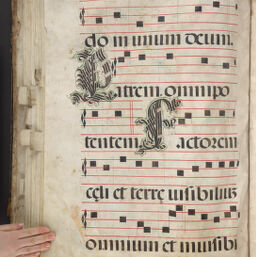 do in unum deum.
Patrem omnipo
tentem Factorem
cęli et terrę uisibilius
omnium et inuisibi